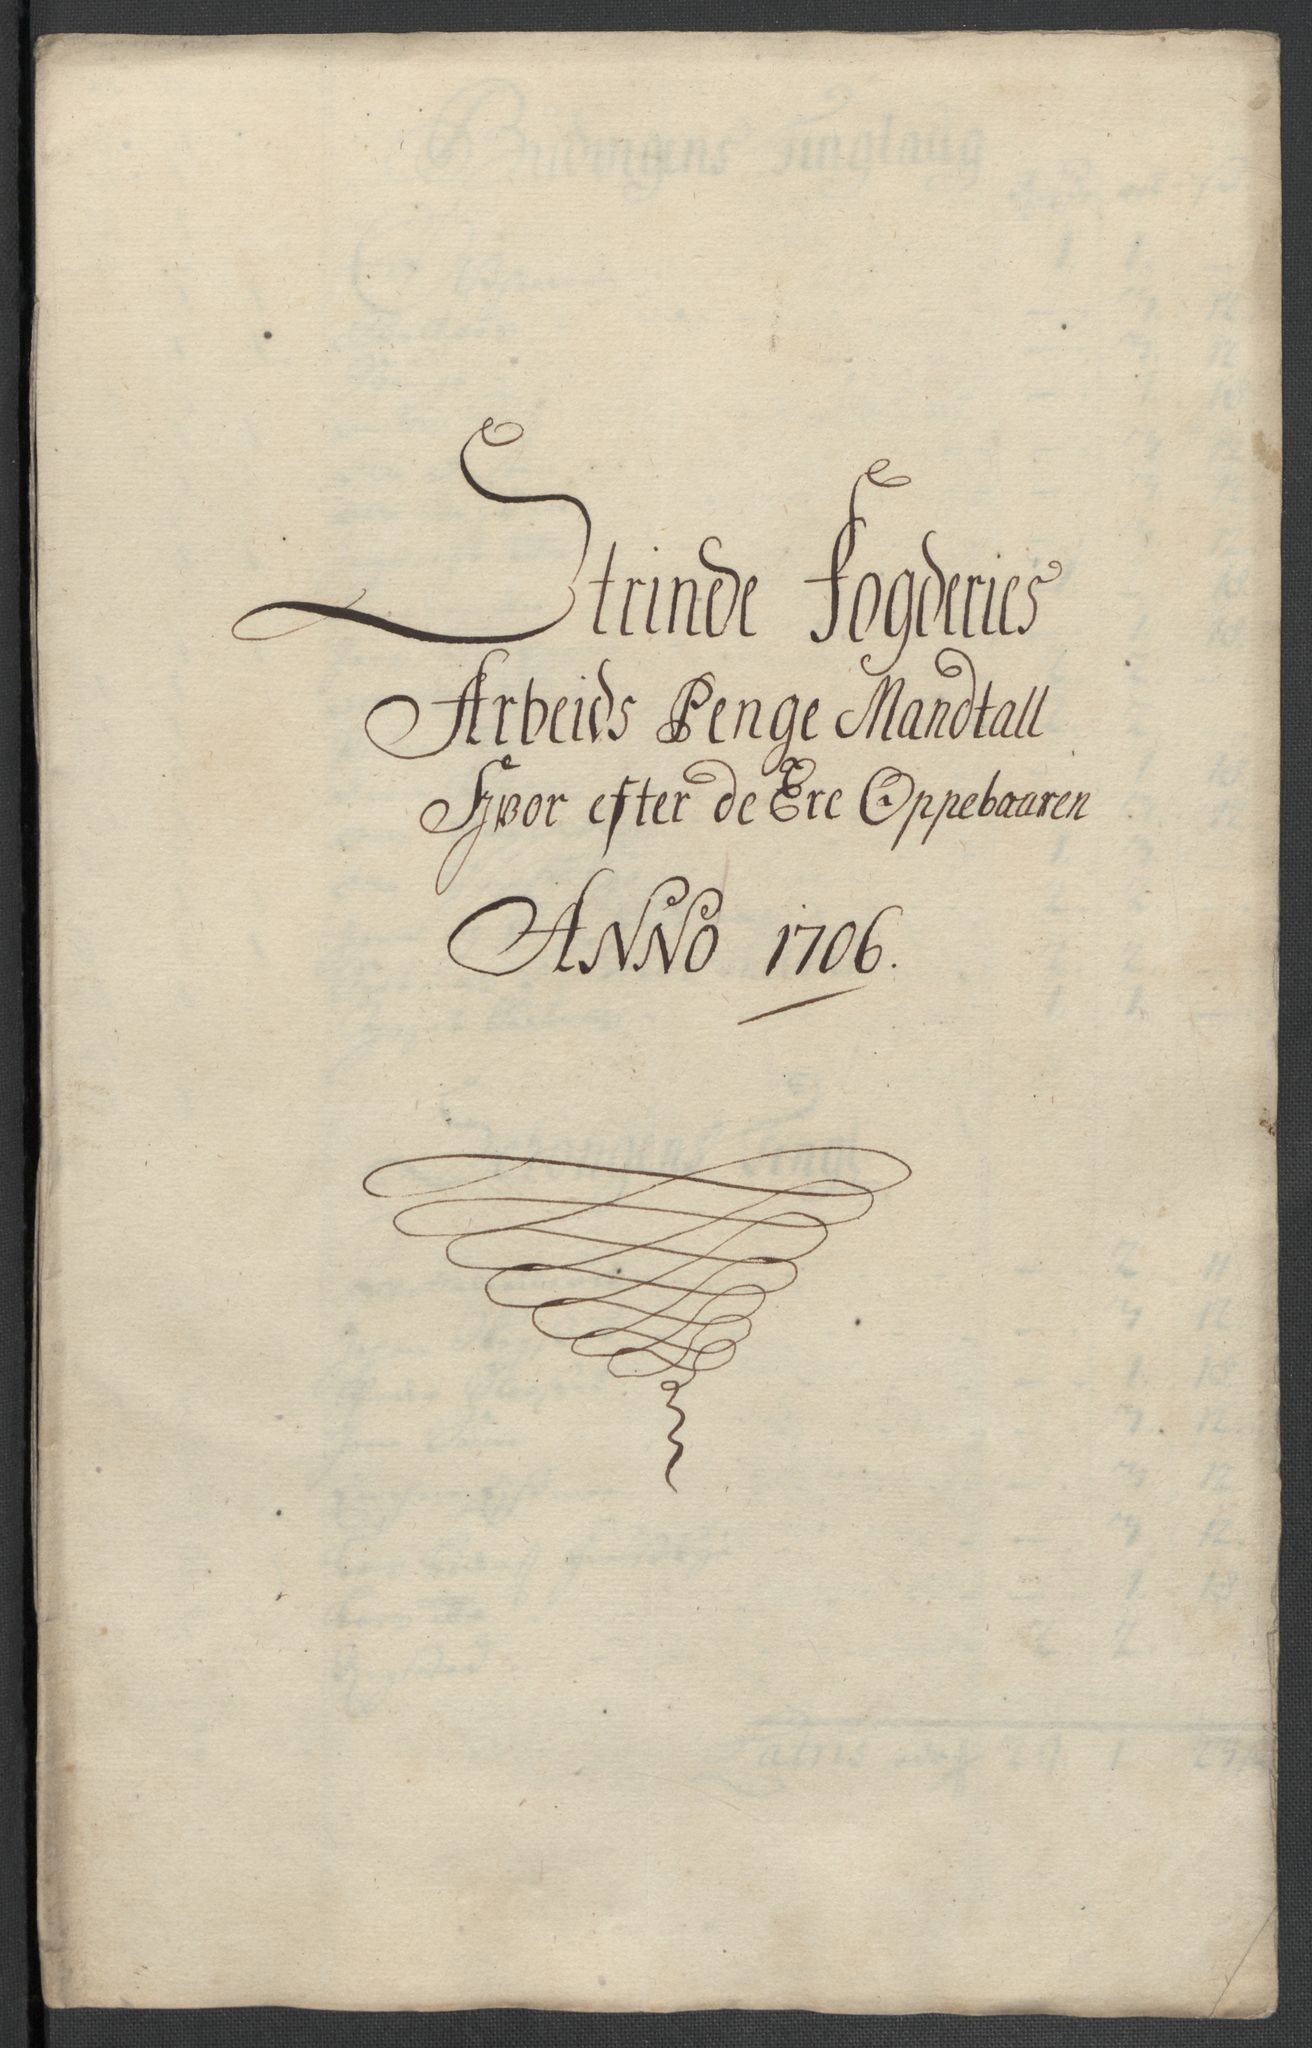 Strinde Fogderies
Arbeids Penge Mandtall
Hvor efter de Ere Oppebaaren
ANNO 1706.